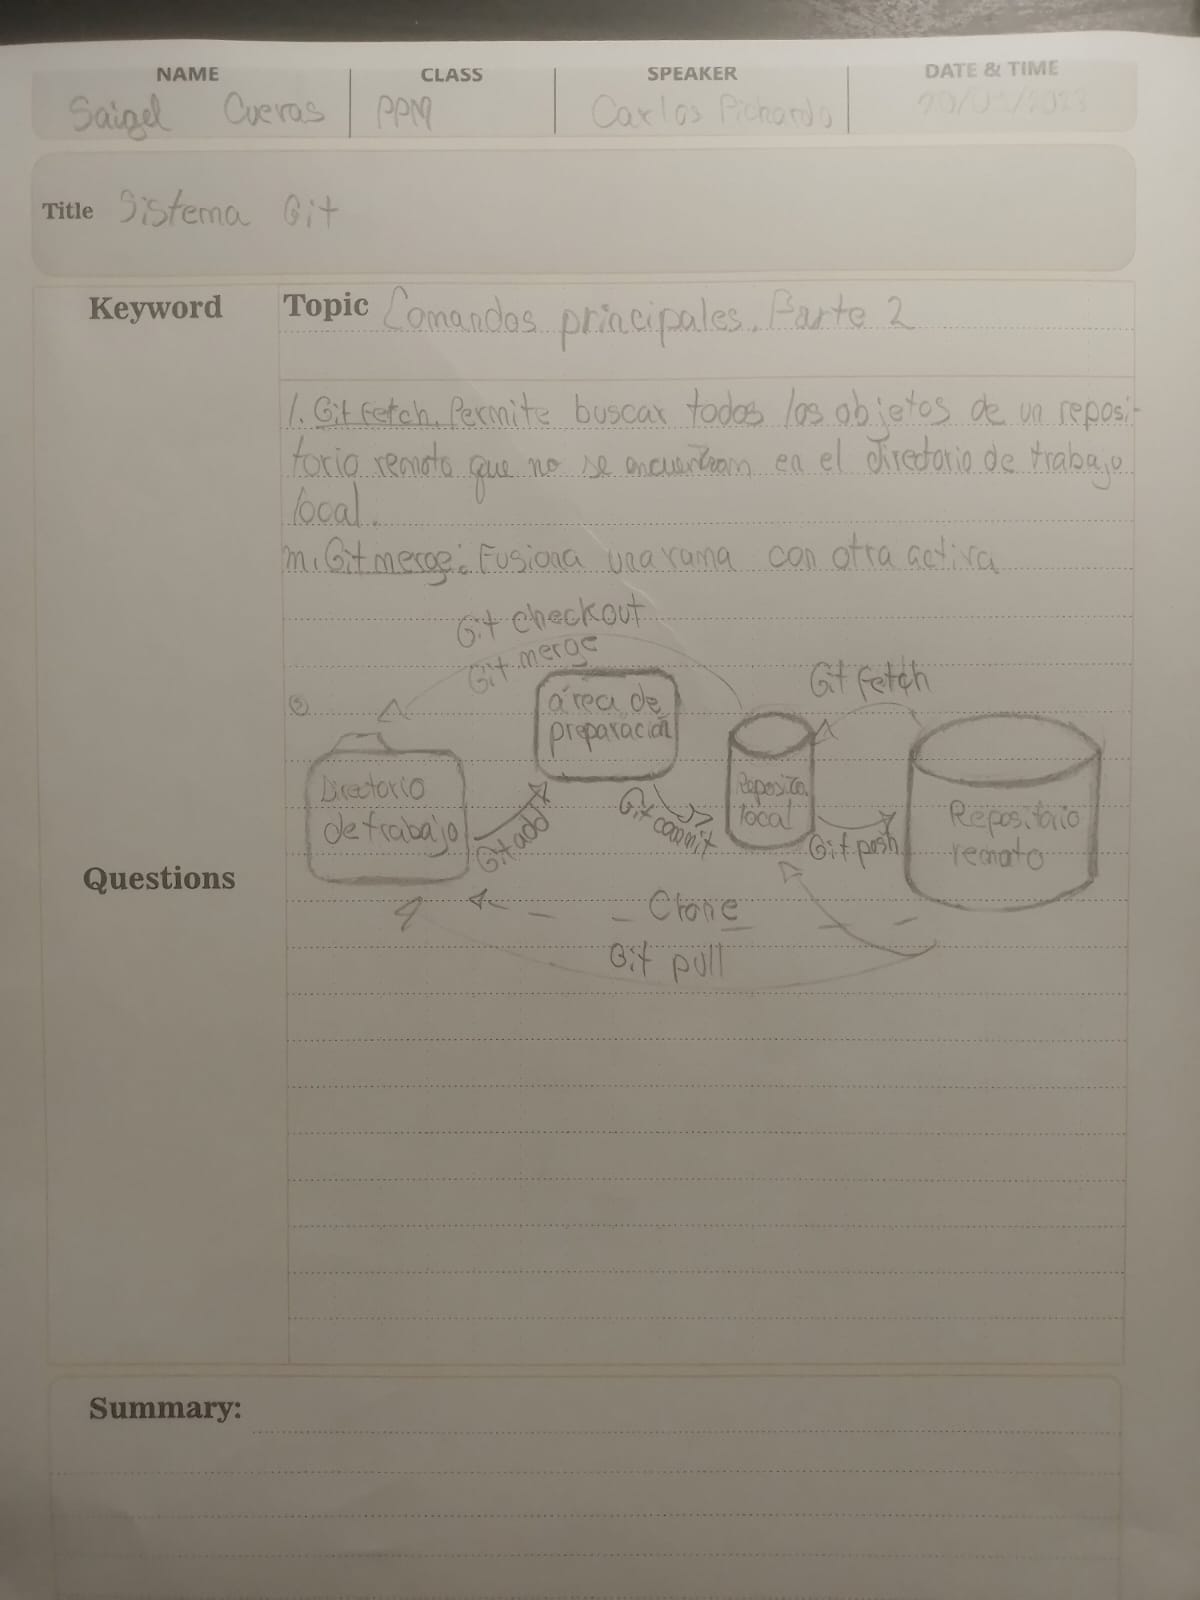 NAME CLASS SPEAKER DATE & TIME
Saigel Cuevas PPM Carlos Pichardo
Title Sistema Git
Keyword Topic Comandos principales. Parte 2
l. Git Fetch. Permite buscar todos los objetos de un reposi-
torio remoto que no se encuentran en el directorio de trabajo
local.
m. Git merge: Fusiona una rama con otra activa
Git checkout
Git merge
Git fetch
área de
preparación
Directorio
de trabajo
Git add
Git commit
Reposito.
local
Git posh
Repositorio
remoto
Questions
Clone
Git pull
Summary: